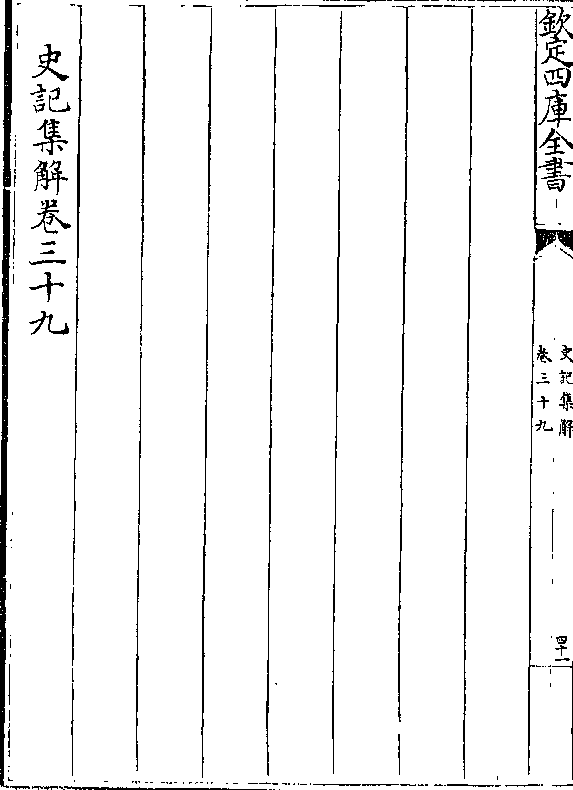 欽定四庫全書
史記集解
卷三十九
四十一
史記集解卷三十九